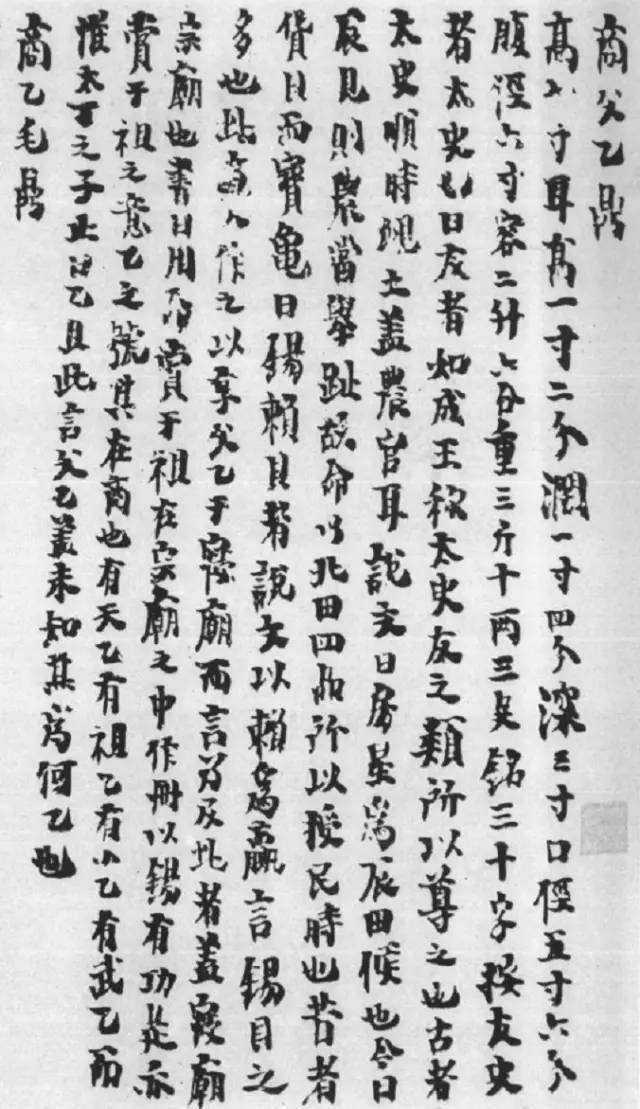 商父乙鼎
高六寸耳高一寸二分濶一寸四分深三寸口徑五寸六分
腹徑六寸容二升六合重三斤十两三足銘三十字按友史
者太史也曰友者如成王称太史友之類所以尊之也古者
太史順時覛土盖農官耳說文曰房星為辰田候也今曰
辰見則農當舉趾故命以北田四品所以授民時也昔者
貨貝而寶亀曰錫賴貝者說文以賴為贏言錫貝之
多也此商人作之以享父乙于寢廟而言及此者盖寢廟
宗廟也書曰用命賞于祖在宗廟之中作冊以錫有功是亦
賞于祖之意乙之號其在商也有天乙有祖乙有小乙有武乙而
惟太丁之子止曰乙且此言父乙盖未知其為何乙也
商乙毛鼎